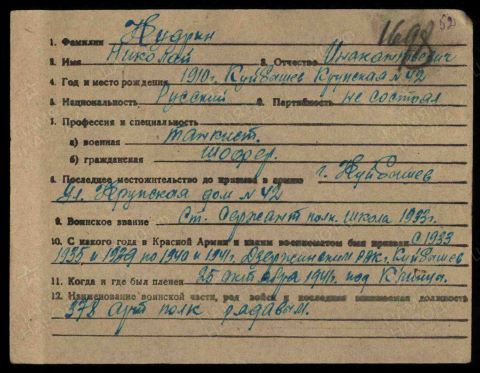 52
1698
1. Фамилия Кудрин
2. Имя Николай 3. Отчество Инакентьевич
4. Год и место рождения 1910г. Куйбашев Крупская № 42
5. Национальность Русский 6. Партийность не состоял
7. Профессия и специальность
а) военная танкист.
б) гражданская шофер.
8. Последнее местожительство до призыва в армию г. Куйбашев
ул. Крупская дом № 42
9. Воинское звание Ст. Сержант полк. школа 1933г.
10. С какого года в Красной Армии и каким военкоматом был призван с 1933
1935 и 1939 по 1940 и 1941г. Дзержинским РВК г. Куйбашев
11. Когда и где был пленен 25 октября 1941г. под
12. Наименование воинской части, род войск и последняя занимаемая должность
378 арт полк рядавым.